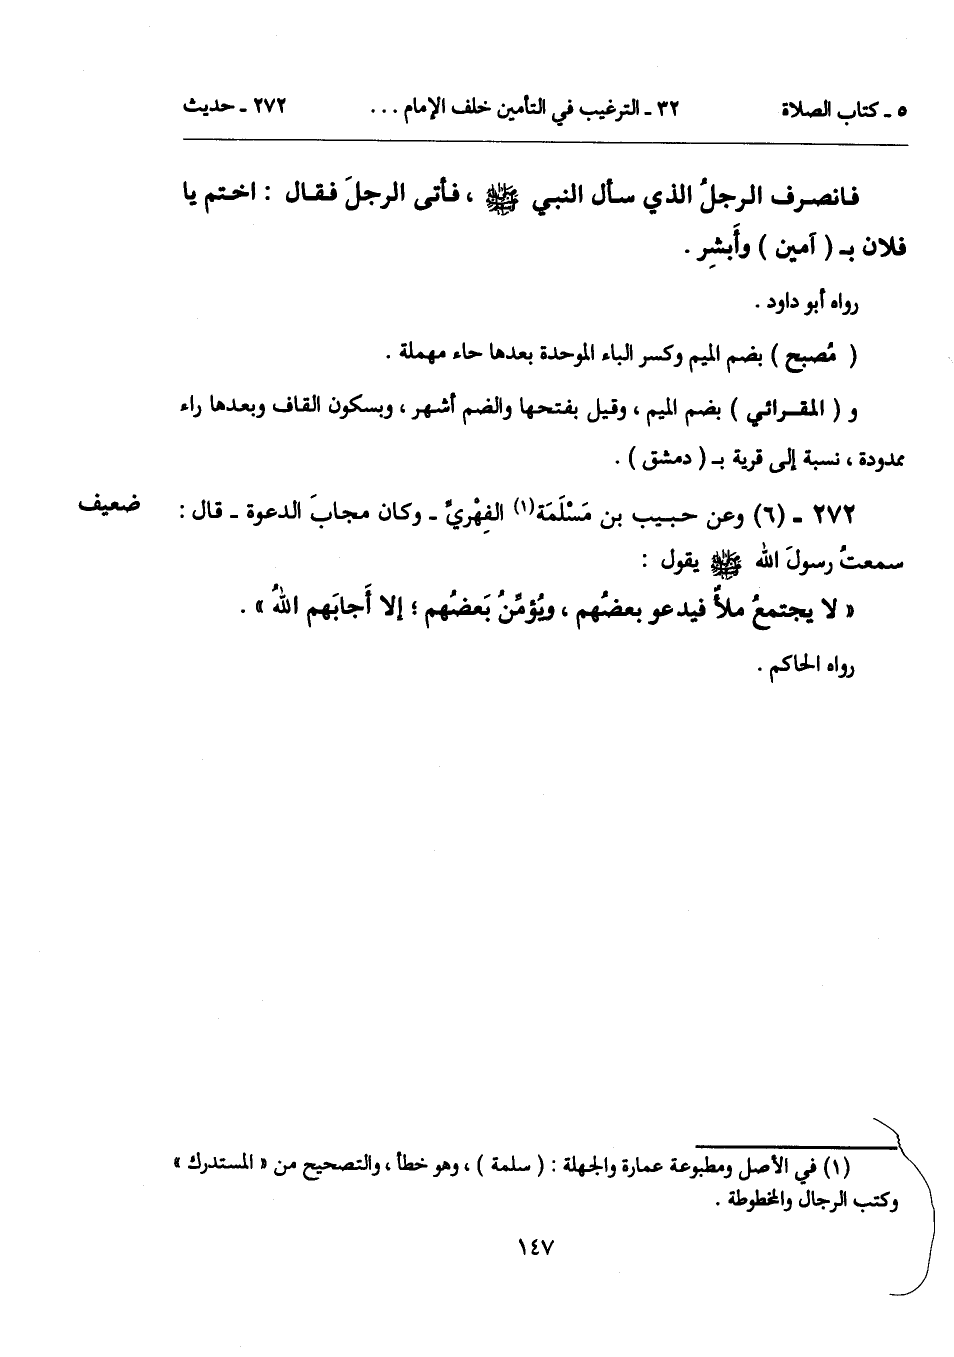 ٥ ـ كتاب الصلاة ٣٢ ـ الترغيب في التأمين خلف الإمام . . . ٢٧٢ ـ حديث
فانصرف الرجلُ الذي سأل النبي ﷺ ، فأتى الرجلَ فقال : اختم يا
فلان بـ ( آمين ) وأَبشِر .
رواه أبو داود .
( مُصبح ) بضم الميم وكسر الباء الموحدة بعدها حاء مهملة .
و ( المقرائي ) بضم الميم ، وقيل بفتحها والضم أشهر ، وبسكون القاف وبعدها راء
ممدودة ، نسبة إلى قرية بـ ( دمشق ) .
٢٧٢ ـ (٦) وعن حبيب بن مَسْلَمَة(١) الفِهْريِّ ـ وكان مجابَ الدعوة ـ قال : ضعيف
سمعتُ رسولَ الله ﷺ يقول :
« لا يجتمعُ ملأٌ فيدعو بعضُهم ، ويُؤمِّنُ بَعضُهم ؛ إلا أَجابَهم اللهُ » .
رواه الحاكم .
(١) في الأصل ومطبوعة عمارة والجهلة : ( سلمة ) ، وهو خطأ ، والتصحيح من « المستدرك »
وكتب الرجال والمخطوطة .
١٤٧